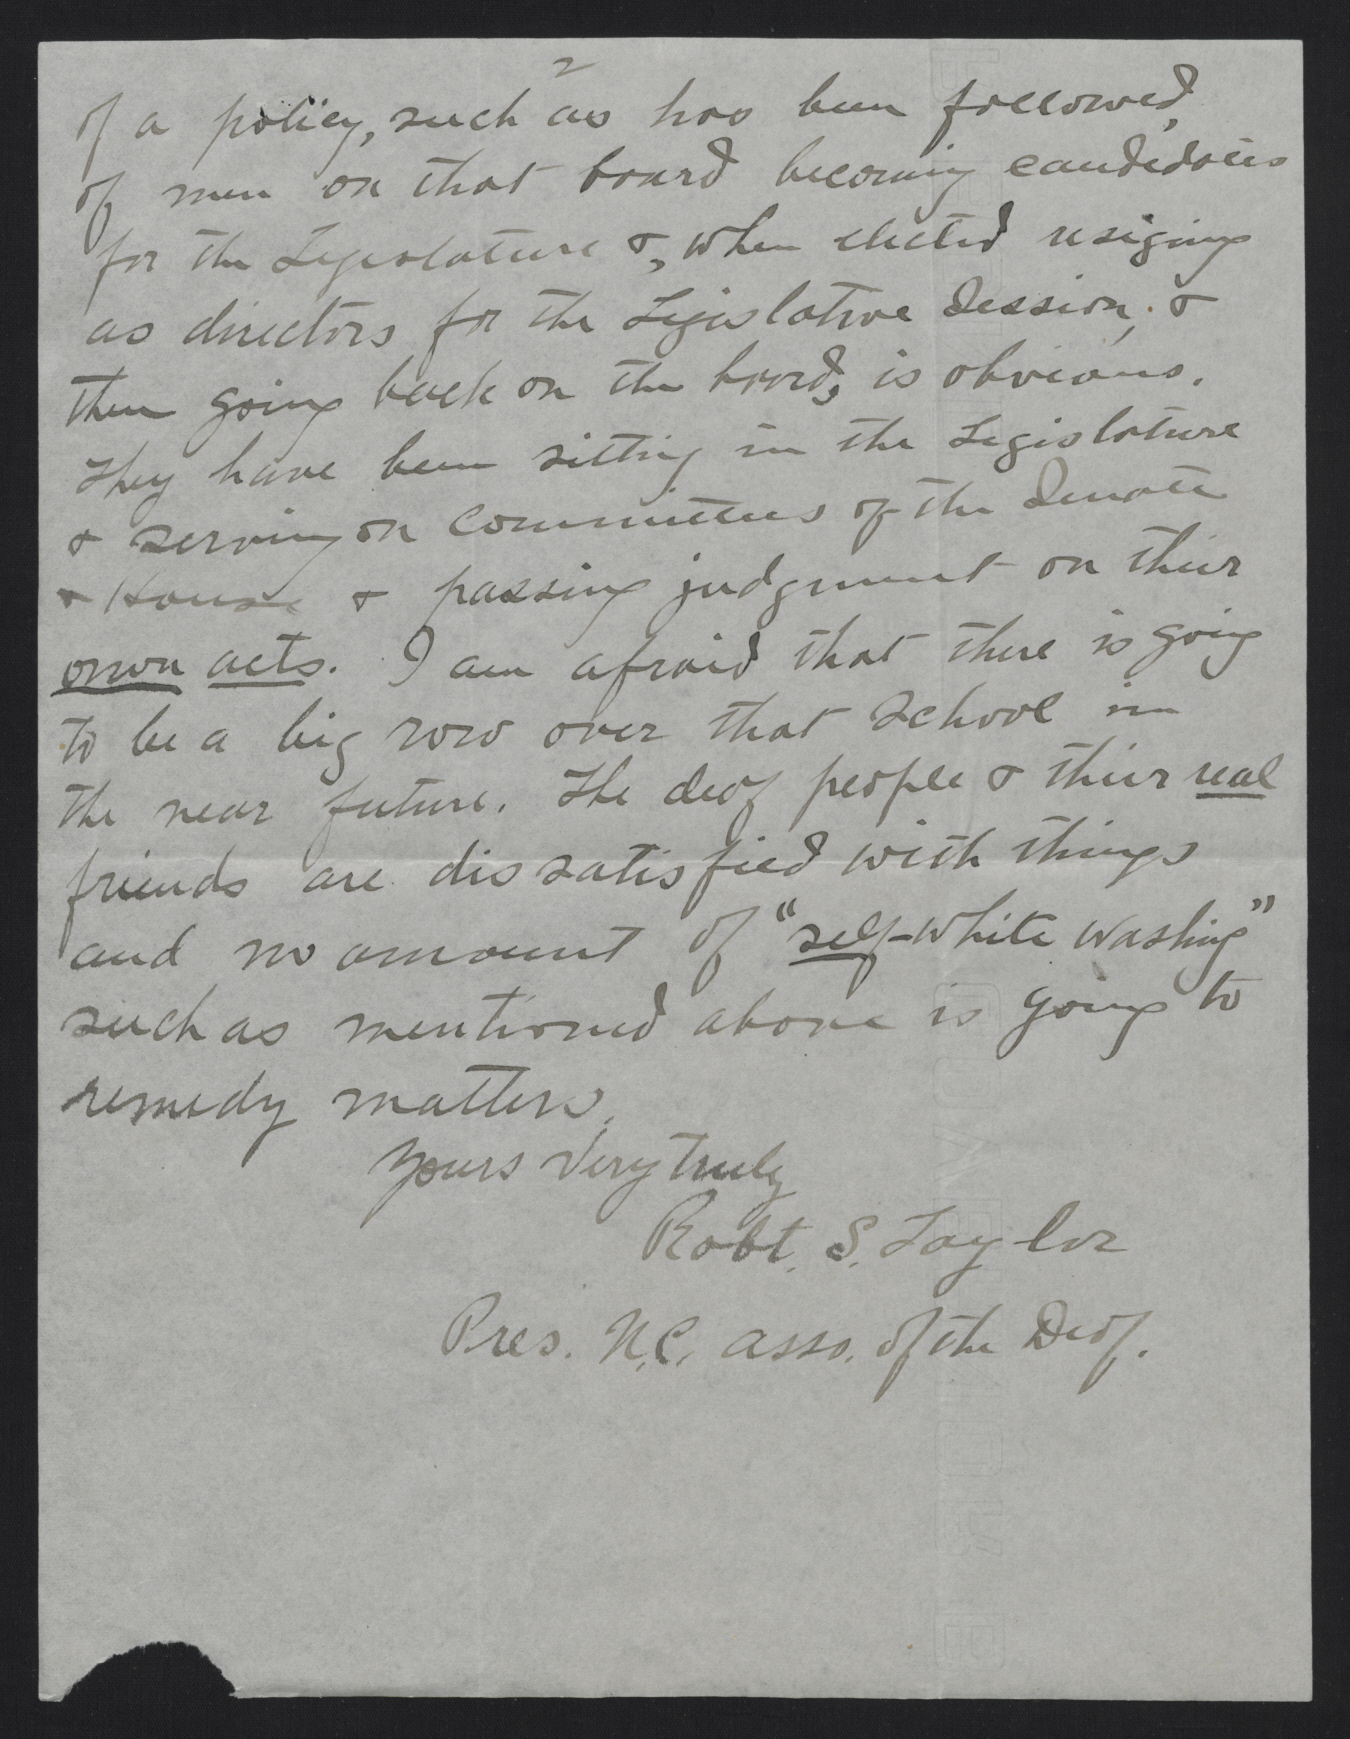 2
of a policy, such as has been followed,
of men on that board becoming candidates
for the Legislature &, when elected resigning
as directors for the Legislative Session, &
then going back on the board, is obvious.
They have been sitting in the Legislature
& serving on committees of the Senate
& House & passing judgment on their
own acts. I am afraid that there is going
to be a big row over that school in
the near future. The deaf people & their real
friends are dissatisfied with things
and no amount of "self-white washing"
such as mentioned above is going to
remedy matters.
Yours Very truly
Robt. S. Taylor
Pres. N.C. Asso. of the Deaf.